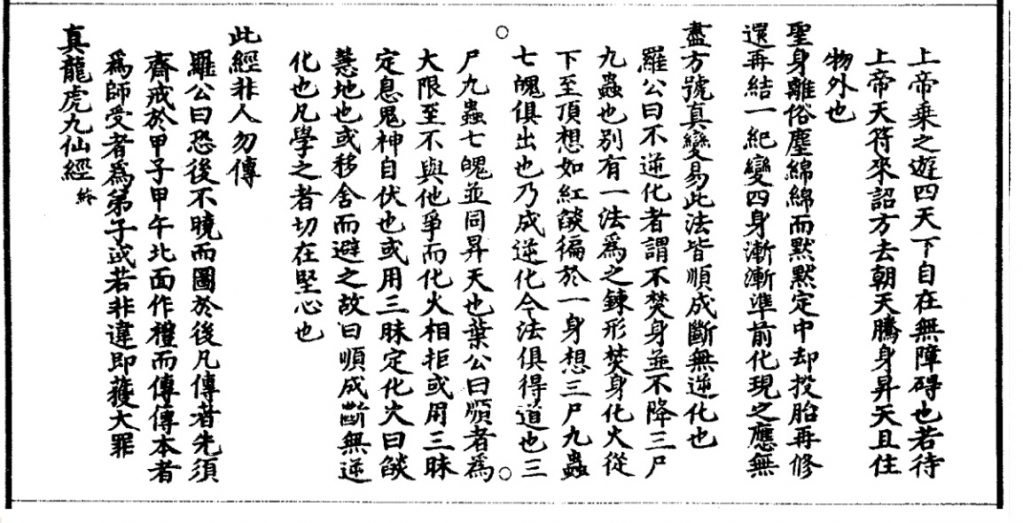 上帝乗之遊四天下自在無障碍也若待
上帝天符來詔方去朝天騰身昇天且住
物外也
聖身離俗塵綿綿而黙黙定中却投胎再修
還再結一紀變四身漸漸準前化現之應無
盡方號真變易此法皆順成斷無逆化也
羅公曰不逆化者謂不焚身並不降三尸
九蟲也別有一法為之鍊形焚身化火從
下至頂想如紅燄徧於一身想三尸九蟲
七魄俱出也乃成逆化今法俱得道也三
尸九蟲七魄並同昇天也葉公曰順者為
大限至不與他爭而化火相拒或用三昧
定息鬼神自伏也或用三昧定化火曰燄
慧地也或移舍而避之故曰順成斷無逆
化也凡學之者切在堅心也
此經非人勿傳
羅公曰恐後不曉而圖於後凡傳者先須
齋戒於甲子甲午北面作禮而傳傳本者
為師受者為弟子或若非違即䕶大罪
真龍虎九仙經 終